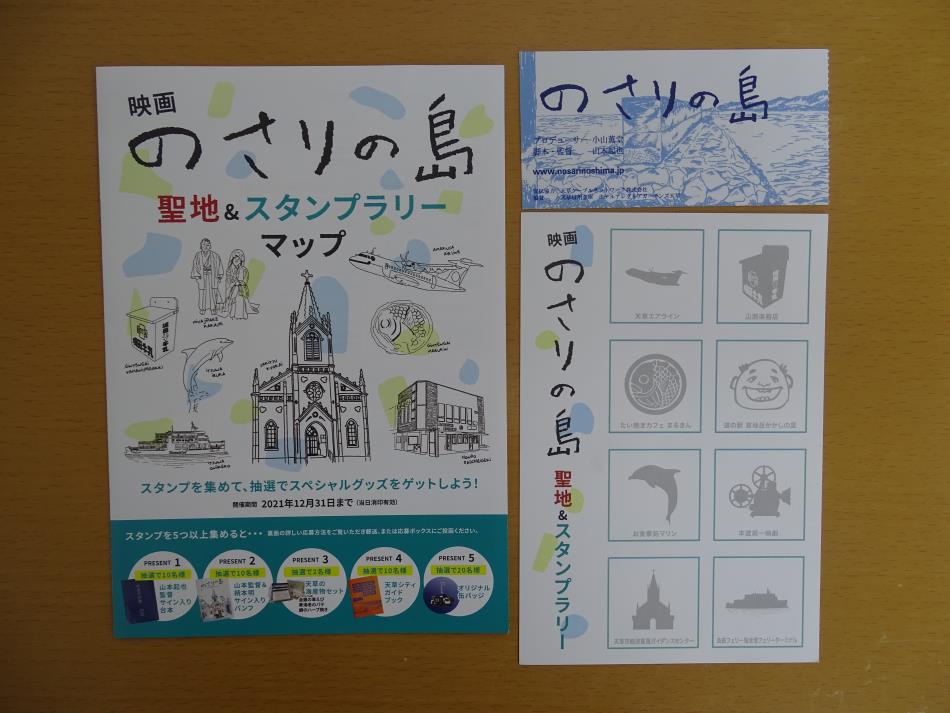 映画
のさりの島
聖地&スタンプラリー
マップ
スタンプを集めて、抽選でスペシャルグッズをゲットしよう!
開催期間 2021年12月31日まで(当日消印有効)
スタンプを5つ以上集めると・・・ 裏面の詳しい応募方法をご覧いただき郵送、または応募ボックスにご投函ください。
PRESENT 1
抽選で10名様
山本起也
監督
サイン入り
台本
PRESENT 2
抽選で10名様
山本監督&
柄本明
サイン入り
パンフ
PRESENT 3
抽選で2名様
天草の
海産物セット
PRESENT 4
抽選で10名様
天草シティ
ガイド
ブック
PRESENT 5
抽選で20名様
オリジナル
缶バッジ
のさりの島
プロデューサー 小山薫堂
脚本・監督 山本起也
www.nosarinoshima.jp
映画
のさりの島
聖地&スタンプラリー
天草エアライン
山西楽器店
たい焼きカフェ まるきん
道の駅 宮地岳かかしの里
お食事処マリン
本渡第一映劇
天草市﨑津集落ガイダンスセンター